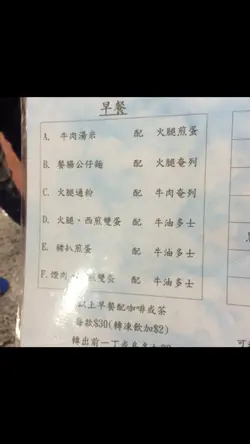 早餐
A. 牛肉湯米 配 火腿煎蛋
B. 餐腸公仔麵 配 火腿奄列
C. 火腿通粉 配 牛肉奄列
D. 火腿、西煎雙蛋 配 牛油多士
E. 豬扒煎蛋 配 牛油多士
F. 煙肉 煎雙蛋 配 牛油多士
以上早餐配咖啡或茶
每款$30(轉凍飲加$2)
轉出前一丁或烏冬